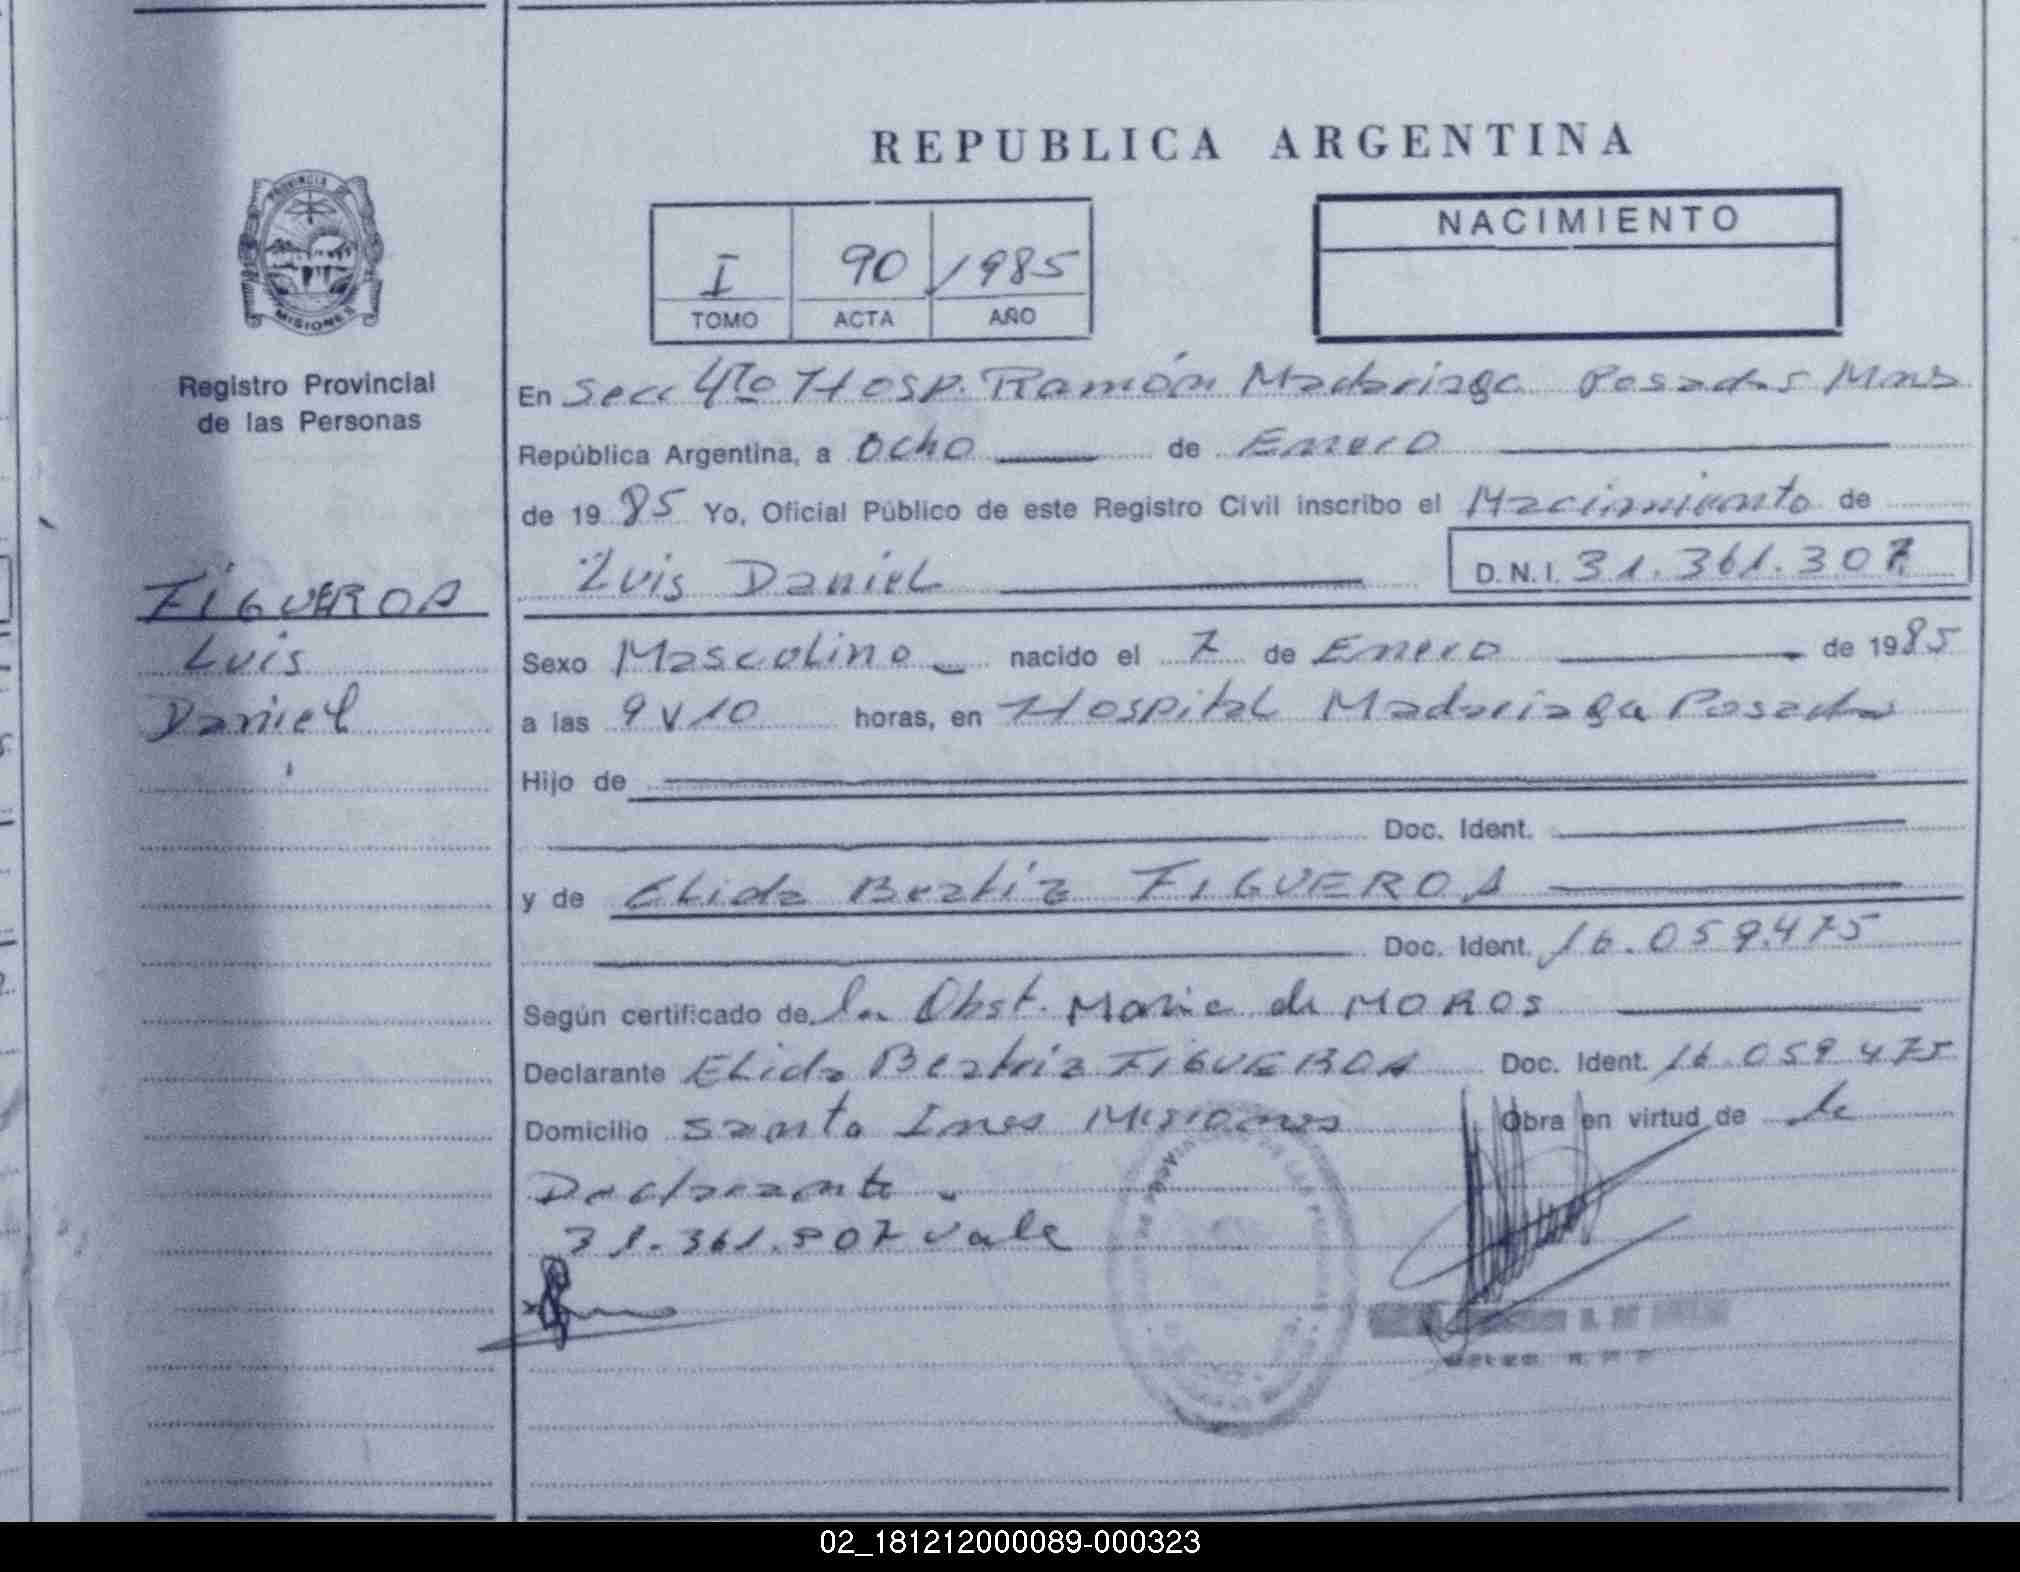 REPUBLICA ARGENTINA
PROVINCIA DE
MISIONES
Registro Provincial
de las Personas
I 90 1985
TOMO ACTA AÑO
NACIMIENTO
En Secc 4to Hosp. Ramón Madariaga Posadas Mnes
República Argentina, a Ocho de Enero
de 1985 Yo, Oficial Público de este Registro Civil inscribo el Nacimiento de
Luis Daniel D.N.I. 31.361.307
FIGUEROA
Luis
Daniel
Sexo Masculino nacido el 7 de Enero de 1985
a las 9 y 10 horas, en Hospital Madariaga Posadas
Hijo de
Doc. Ident.
y de Elida Beatriz FIGUEROA
Doc. Ident. 16.059.475
Según certificado de la Obst. Maria de MOROS
Declarante Elida Beatriz FIGUEROA Doc. Ident. 16.059.475
Domicilio Santa Ines Misiones Obra en virtud de la
Declarante.
31.361.807 vale
02_181212000089-000323